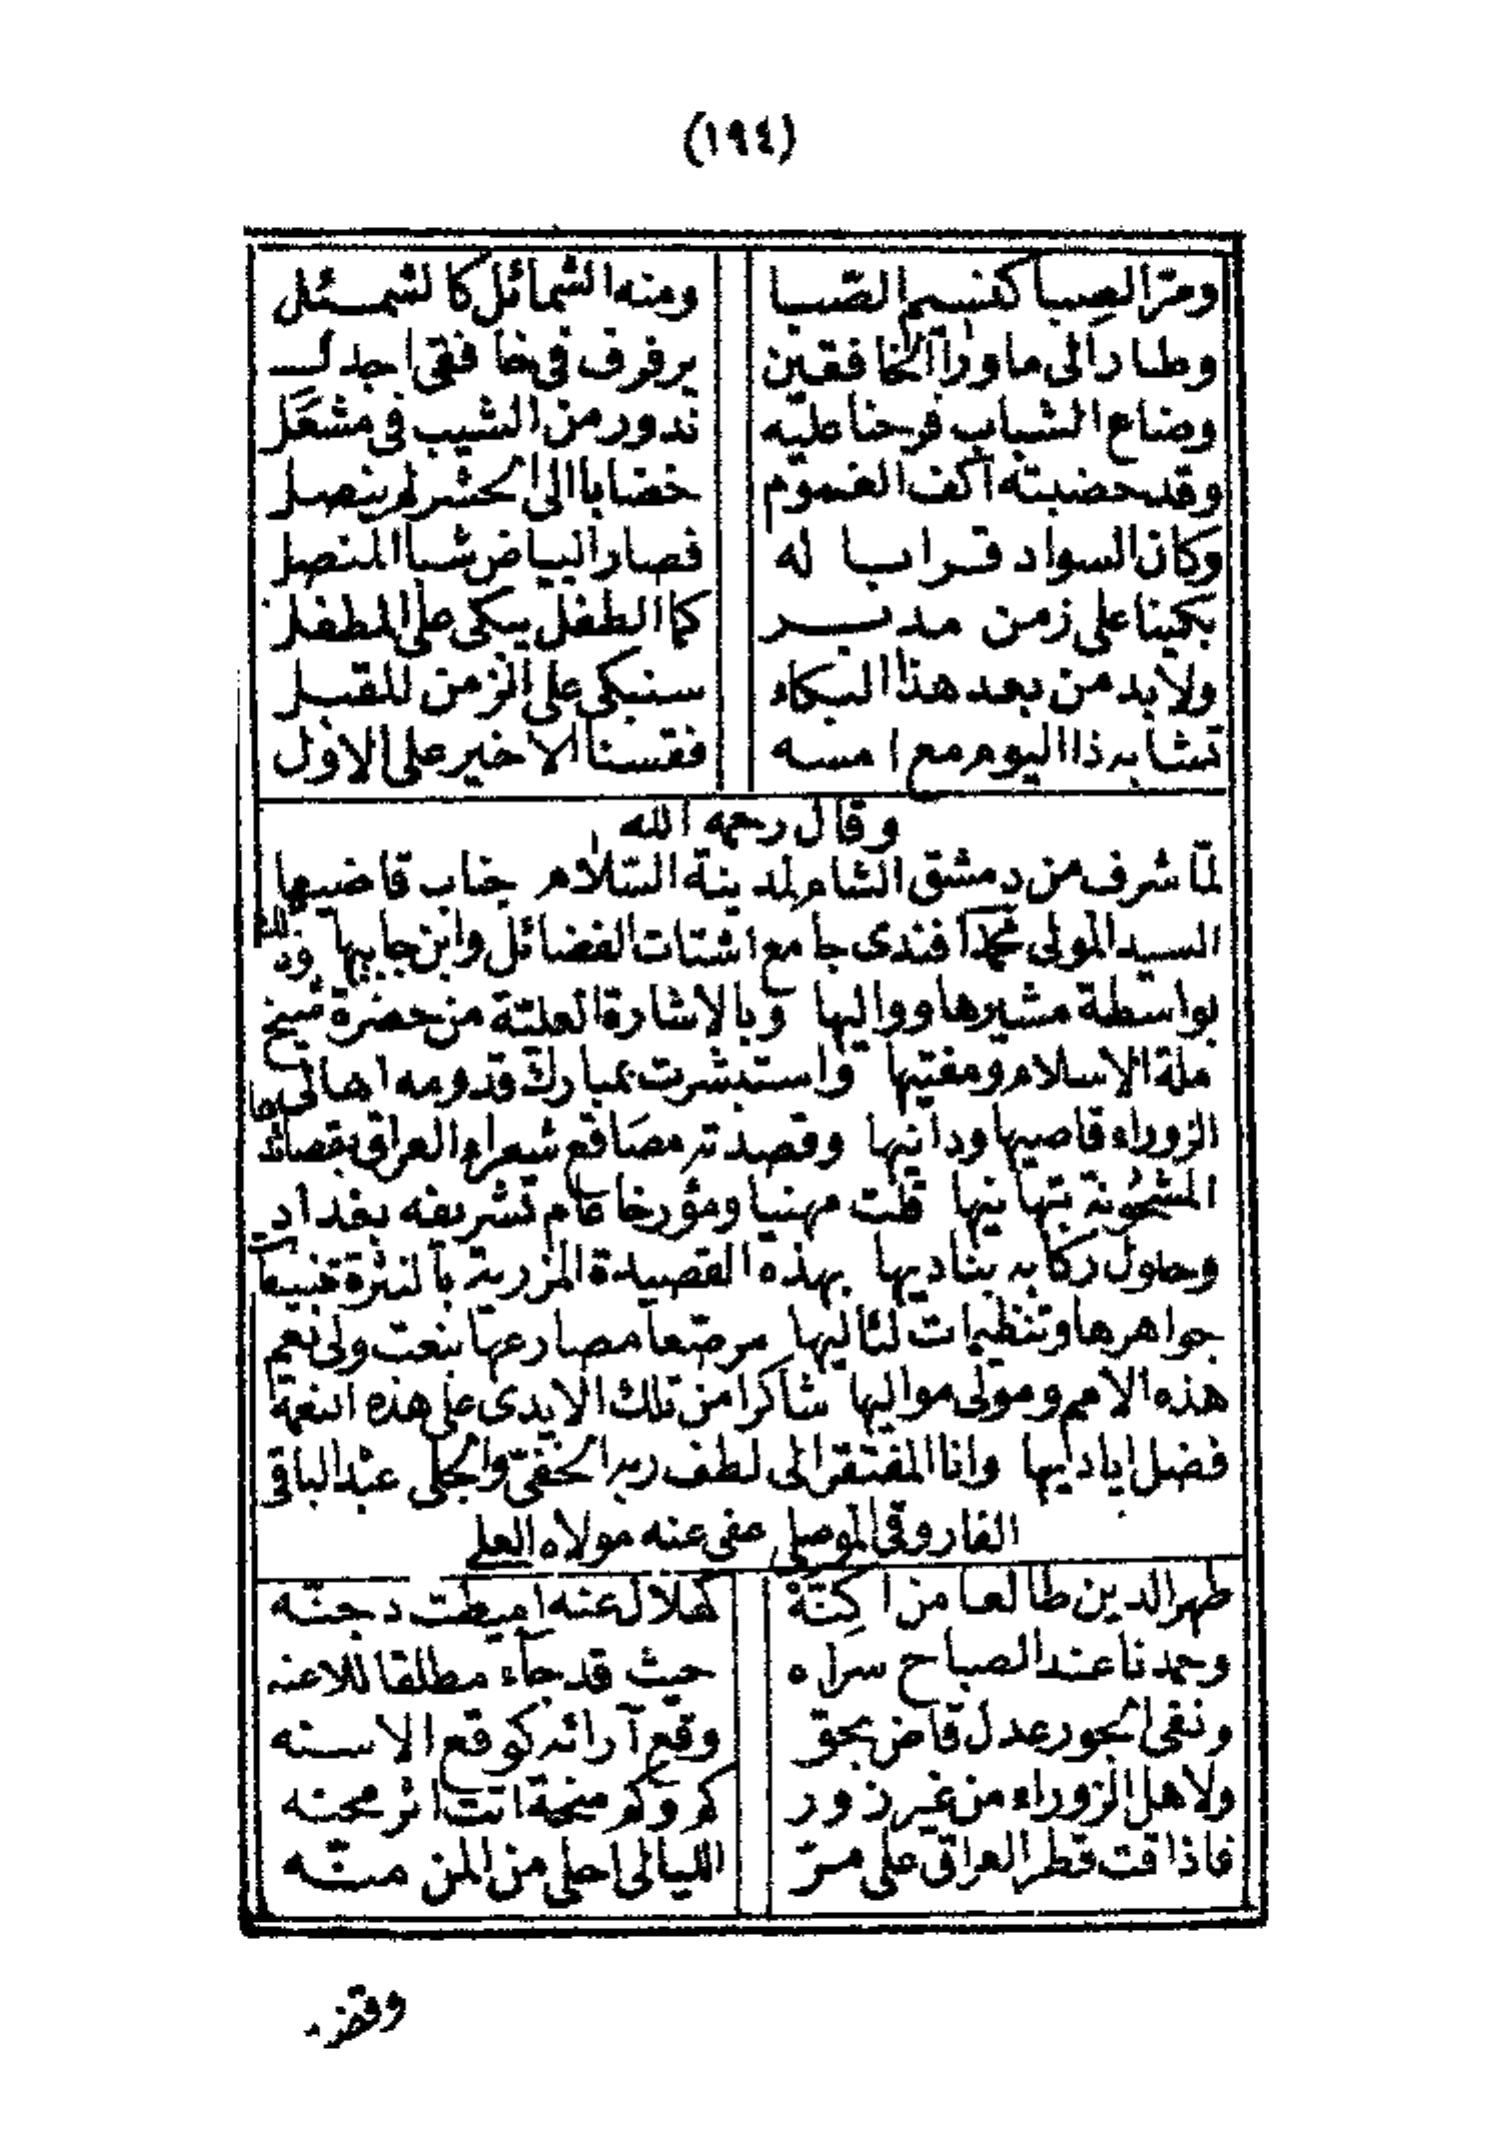 (١٩٤)
ومرّ الصبا كنسيم الصّبا ومنه الشمائل كالشمئل
وطار الى ما ورآء الخافقين يرفرف في خافقى اجدل
وضاع الشباب فرحنا عليه ندور من الشيب فى مشعل
وقد خضبته اكف الغموم خضابا الى الحشر لم ينصل
وكان السواد قرابا له فصار البياض شبا المنصل
بكينا على زمن مدبر كما الطفل يبكى على المطفل
ولابد من بعد هذا البكاء سنبكى على الزمن المقبل
تشابه ذا اليوم مع امسه فقسنا الاخير على الاول
وقال رحمه الله
لمّا شرف من دمشق الشام لمدينة السّلام جناب قاضيها
السيد المولى محمد افندى جامع اشتات الفضائل وابن جابيها وذلك
بواسطة مشيرها وواليها وبالاشارة العليّة من حضرة شيخ
ملة الاسلام ومفتيها واستبشرت بمبارك قدومه اهالى
الزوراء قاصيها ودانيها وقصدته مصاقع شعراء العراق بقصائد
المشحونة بتهانيها قلت مهنيا ومؤرخا عام تشريفه بغداد
وحلول ركابه بناديها بهذه القصيدة المزرية بالنثرة
جواهرها وتنظيمات لئاليها مرصّعا مصارعها بنعت ولى نعم
هذه الامم ومولى مواليها شاكرا من تلك الايدى على هذه النعمة
فضل اياديها وانا المفتقر الى لطف ربه الخفىّ والجلى عبد الباقى
الفاروقى الموصلى عفى عنه مولاه العلى
ظهر الدين طالعا من اكنّة كهلال عنه اميطت دجنّه
وحمدنا عند الصباح سراه حيث قد جآء مطلقا للاعنه
ونفى الجور عدل قاض بحقّ وقع آرائه كوقع الاسنه
ولاهل الزوراء من غير زور كم وكم منحة اتت اثر محنه
فاذاقت قطر العراق على مرّ الليالى احلى من المن منّه